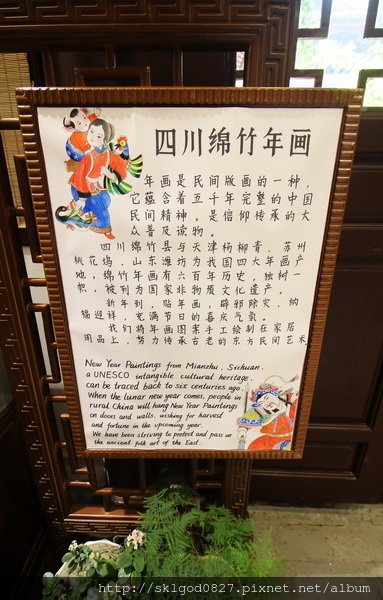 四川绵竹年画
年画是民间版画的一种，
它蕴含着五千年完整的中国
民间精神，是信仰传承的大
众普及读物。
四川绵竹县与天津杨柳青、苏州
桃花坞、山东潍坊为我国四大年画产
地，绵竹年画有六百年历史，独树一
帜，被列为国家非物质文化遗产。
新年到，贴年画，辟邪除灾，纳
福迎祥，充满节日的喜庆气氛。
我们将年画图案手工绘制在家居
用品上，努力传承古老的东方民间艺术
New Year Paintings from Mianzhu, Sichuan,
a UNESCO intangible cultural heritage,
can be traced back to six centuries ago.
When the lunar new year comes, people in
rural China will hang New Year Paintings
on doors and walls, wishing for harvest
and fortune in the upcoming year.
We have been striving to protect and pass on
the ancient folk art of the East.
http://sklgod0827.pixnet.net/album